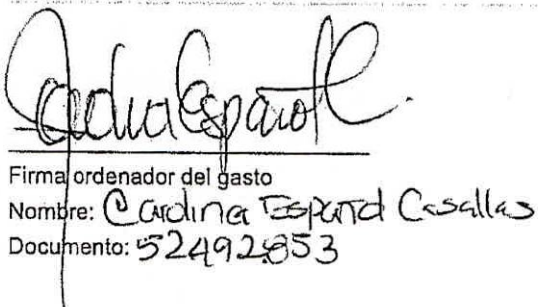 Firma ordenador del gasto
Nombre: Carolina Español Casallas
Documento: 52492853